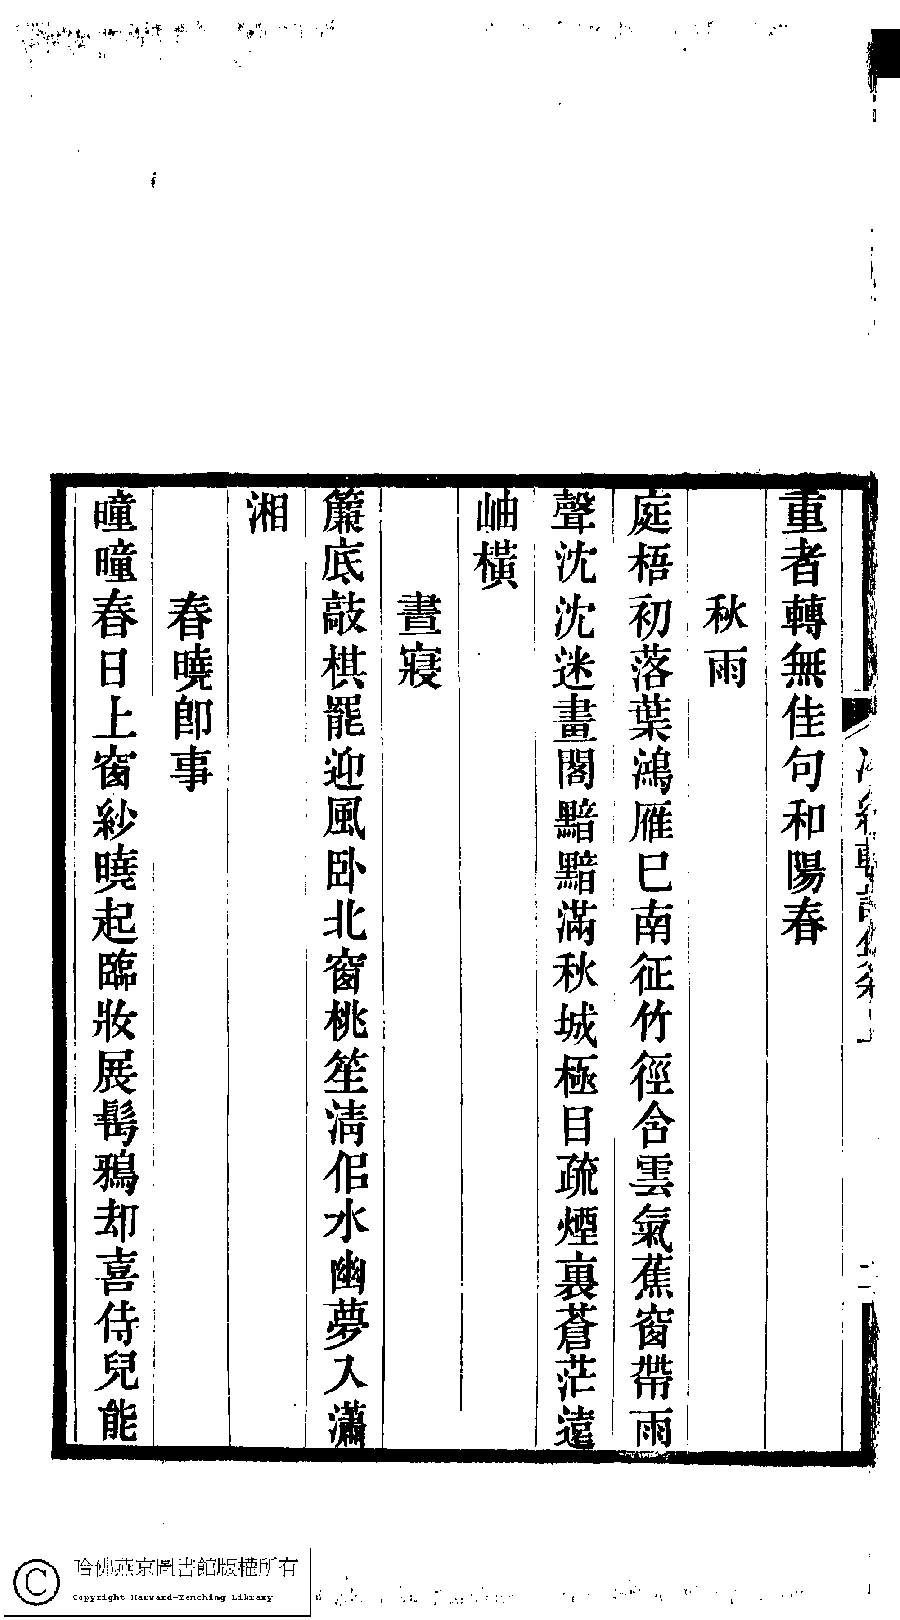 重者轉無佳句和陽春
秋雨
庭梧初落葉鴻雁巳南征竹徑含雲氣蕉窗帶雨
聲沈沈迷畫閣黯黯滿秋城極目疏煙裏蒼茫遠
岫橫
晝寢
簾底敲棋罷迎風臥北窗桃笙淸侶水幽夢入瀟
湘
春曉卽事
曈曈春日上窗紗曉起臨妝展髩鴉却喜侍兒能
哈佛燕京圖書館版權所有
Copyright Harvard-Yenching Library